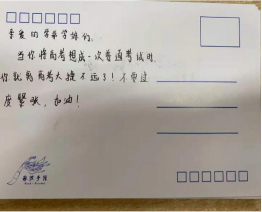 亲爱的学弟学妹们,
当你将高考想成一次普通考试时,
你就离高考大捷不远了!不要过
度紧张,加油!